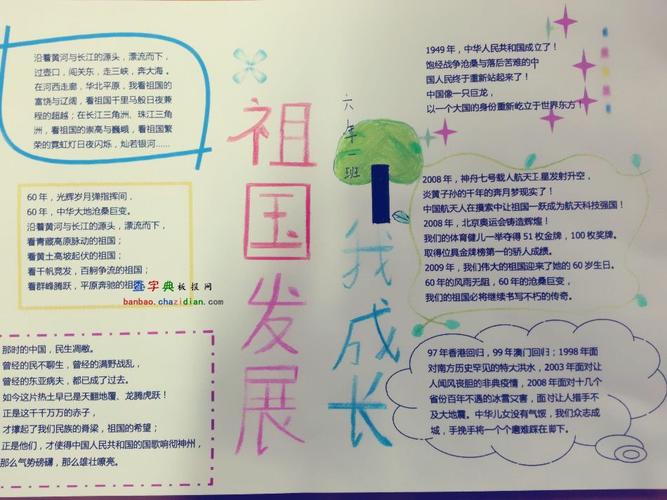 沿着黄河与长江的源头，漂流而下，
过壶口，闯关东，走三峡，奔大海。
在河西走廊，华北平原，我看祖国的
富饶与辽阔，看祖国千里马般日夜兼
程的超越；在长江三角洲、珠江三角
洲，看祖国的崇高与巍峨，看祖国繁
荣的霓虹灯日夜闪烁，灿若银河……
60 年，光辉岁月弹指挥间，
60 年，中华大地沧桑巨变。
沿着黄河与长江的源头，漂流而下，
看青藏高原脉动的祖国；
看黄土高坡起伏的祖国；
看千帆竞发，百舸争流的祖国；
看群峰腾跃，平原奔驰的祖
查字典板报网
banbao.chazidian.com
那时的中国，民生凋敝。
曾经的民不聊生，曾经的满野战乱，
曾经的东亚病夫，都已成了过去。
如今这片热土早已是天翻地覆、龙腾虎跃！
正是这千千万万的赤子，
才撑起了我们民族的脊梁，祖国的希望；
正是他们，才使得中国人民共和国的国歌响彻神州，
那么气势磅礴，那么雄壮嘹亮。
祖国发展
六年一班
我成长
1949 年，中华人民共和国成立了！
饱经战争沧桑与落后苦难的中
国人民终于重新站起来了！
中国像一只巨龙，
以一个大国的身份重新屹立于世界东方！
2008 年，神舟七号载人航天王星发射升空，
炎黄子孙的千年的奔月梦现实了！
中国航天人在摸索中让祖国一跃成为航天科技强国！
2008 年，北京奥运会铸造辉煌！
我们的体育健儿一举夺得 51 枚金牌，100 枚奖牌。
取得位具金牌榜第一的骄人成绩。
2009 年，我们伟大的祖国迎来了她的 60 岁生日。
60 年的风雨无阻，60 年的沧桑巨变，
我们的祖国必将继续书写不朽的传奇。
97 年香港回归，99 年澳门回归；1998 年面
对南方历史罕见的特大洪水，2003 年面对让
人闻风丧胆的非典疫情，2008 年面对十几个
省份百年不遇的冰雪灾害，面对让人措手不
及大地震。中华儿女没有气馁，我们众志成
城，手挽手将一个个磨难踩在脚下。